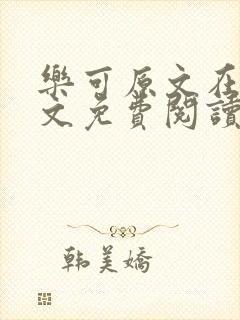 樂可原文在
文免費閱讀
韩美嬌